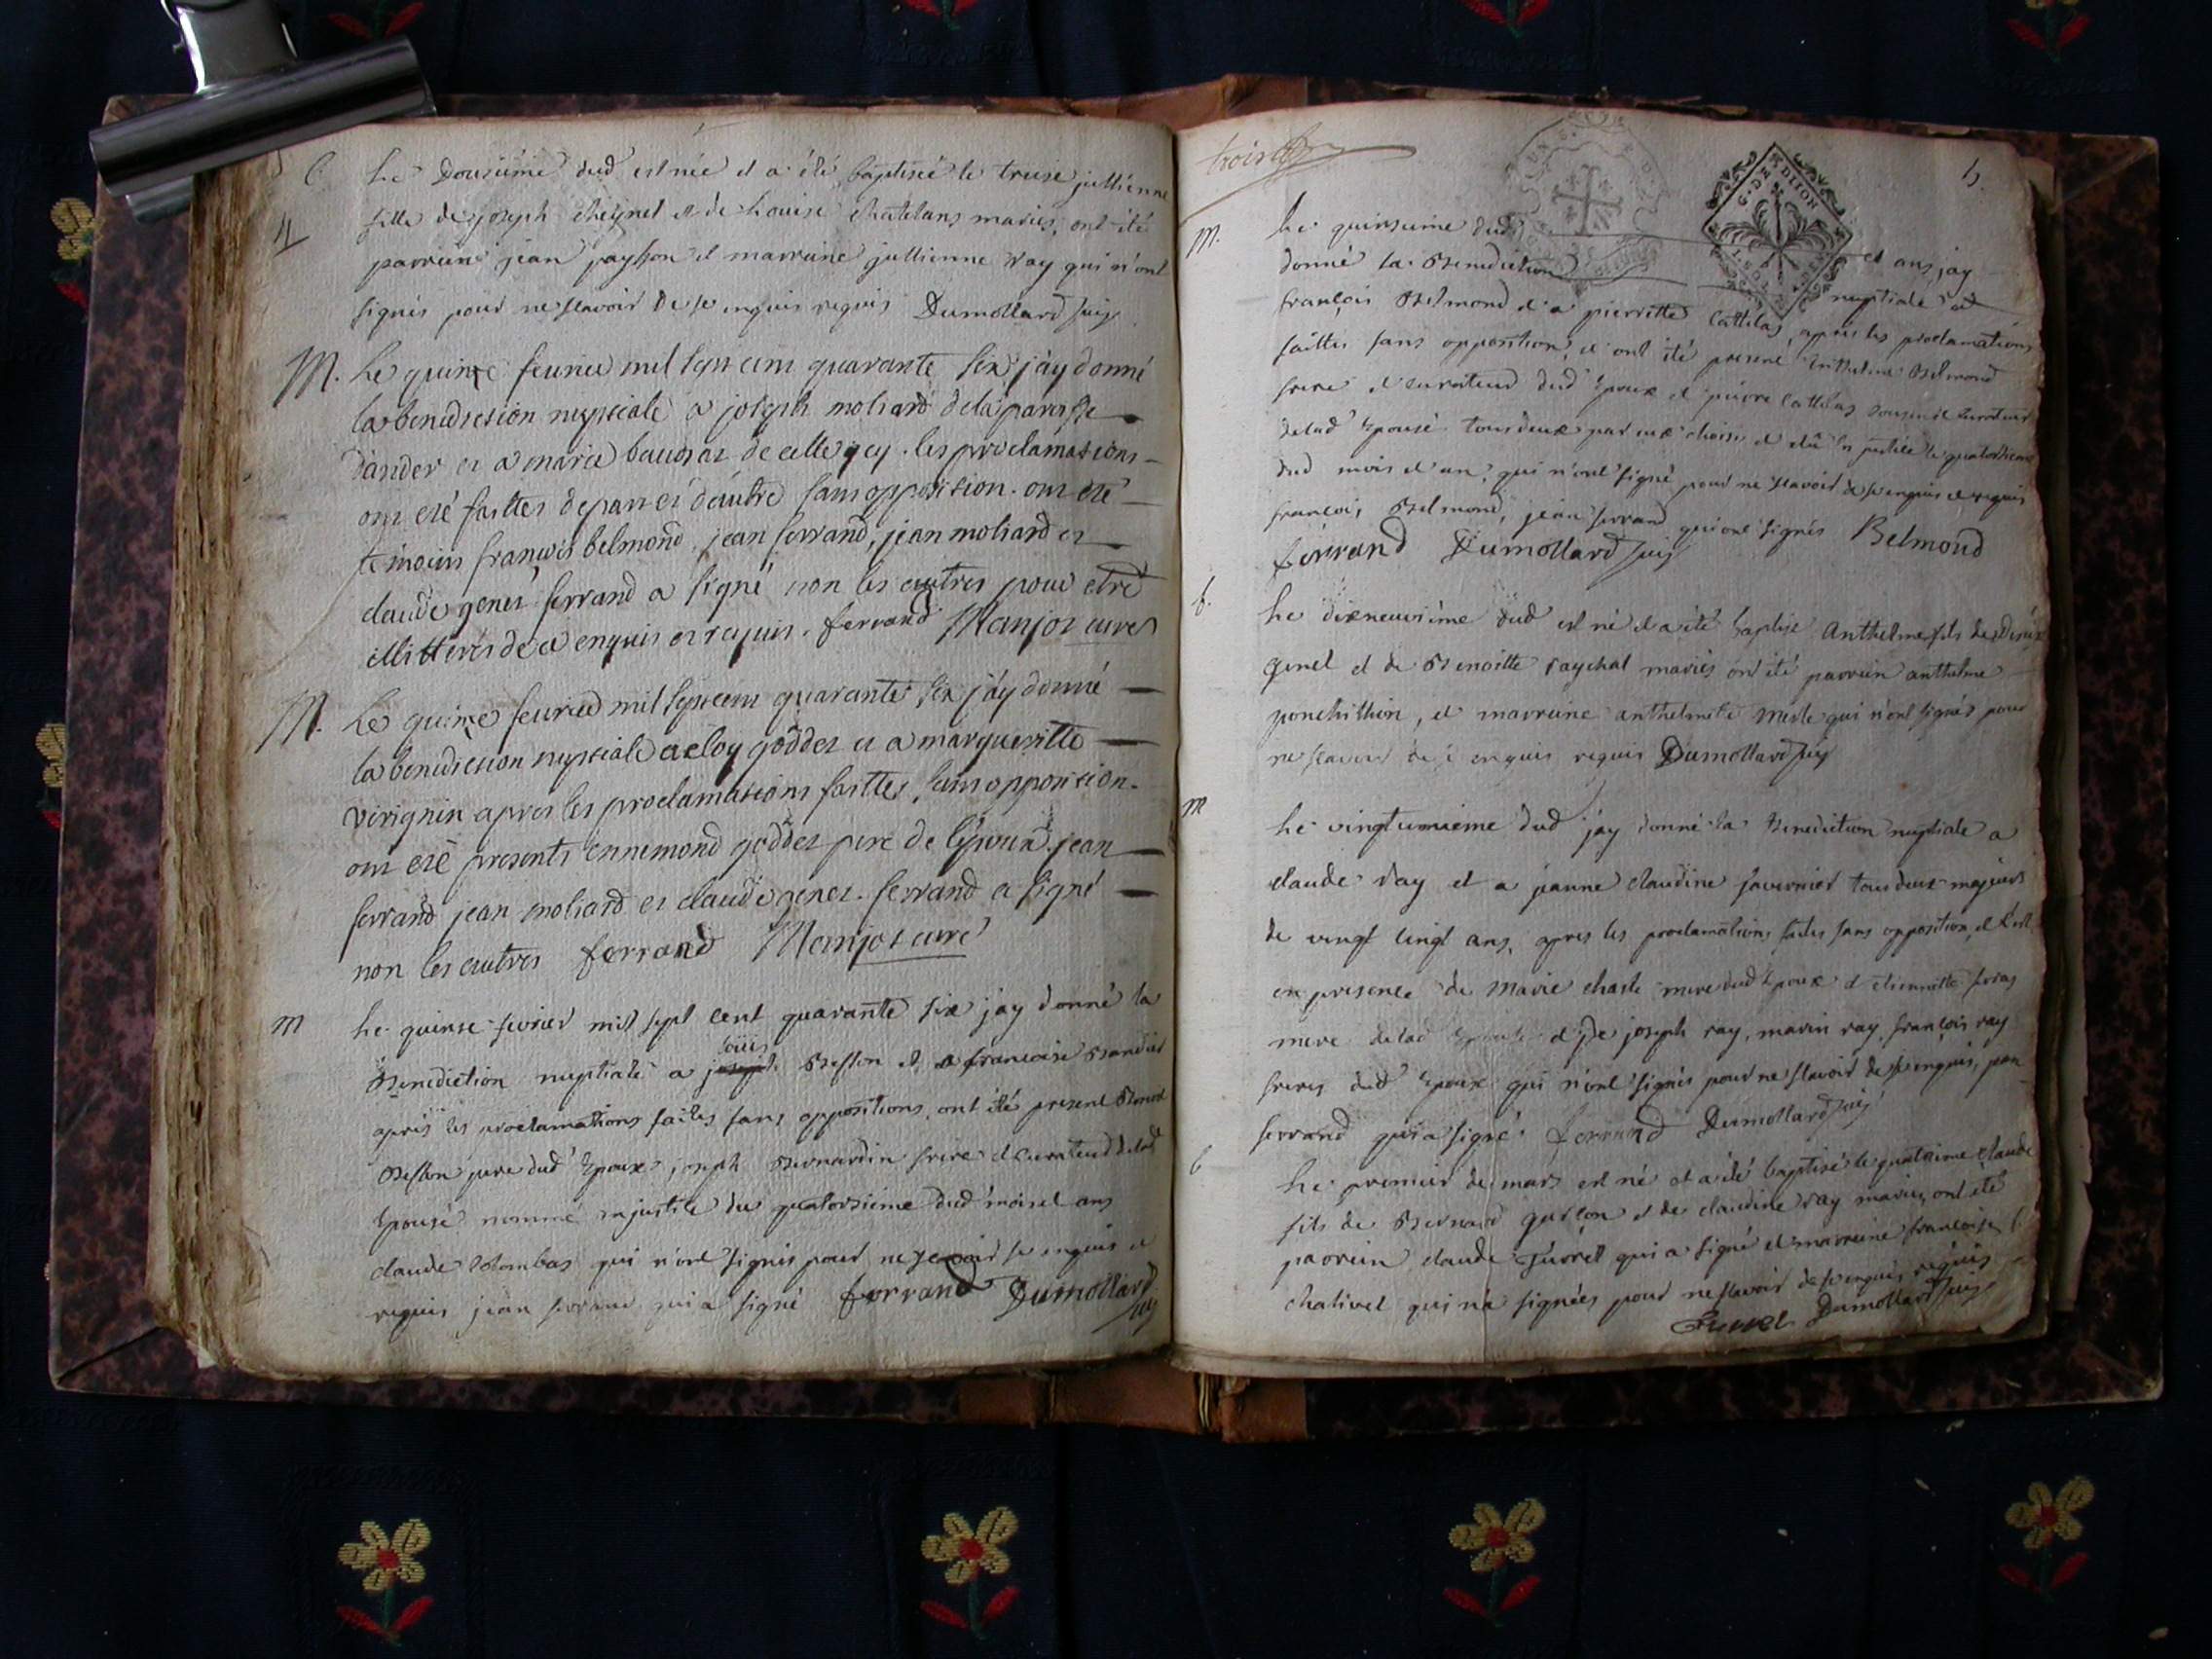 4
b
Le Douziéme dud est née et a été baptisée le treise jullienne
fille de joseph cheynel et de Louise chatelans mariés, ont été
parrein jean payson et marreine jullienne Ray qui n'ont
signés pour ne scavoir de ce enquis requis Dumollard vic
M. Le quinze feurier mil sept cens quarante six j'ay donné
la benediction nuptiale a joseph moliard de la paroisse
d'ander et a marie baudras de celle cy. les proclamations
ont eté faittes de part et d'autre sans opposition. ont eté
temoins françois belmond, jean ferrand, jean moliard et
claude genet ferrand a signé non les autres pour etre
illitterés de ce enquis et requis. ferrand Manjot curé
M. Le quinze feurier mil sept cens quarante six j'ay donné
la benediction nuptiale a eloy goddet et a margueritte
virignin apres les proclamations faittes, sans opposition.
ont eté presents ennemond goddet pere de l'epoux. jean
ferrand jean moliard et claude genet. ferrand a signé
non les autres ferrand Manjot curé
m Le quinse fevrier mil sept cent quarante six jay donné la
loüis
Benediction nuptiale a joseph Besson et a francoise Bernardin
après les proclamations faites sans oppositions, ont été present Benoit
Besson pere dud Epoux, joseph Bernardin frere et curateud delad
Epouse nommé en justice du quatorsieme dud mois et ans
claude Colombas qui n'ont signés pour ne scavoir de enquis et
requis jean ferrand qui a signé ferrand Dumollard
vic
trois
5.
G. DE DIJON
M. Le quinsieme dud et ans jay
donné la Benediction nuptiale a
françois Belmond et a pierrette Cattilas, après les proclamations
faittes sans opposition, et ont été present Anthelme Belmond
frere et curateur dud Epoux et pierre Cattilas cousin et curateur
delad Epouse tous deux par eux choisis et élû en justice le quatorsieme
dud mois et an, qui n'ont signé pour ne scavoir de ce enquis et requis
françois Belmond, jean ferrand qui ont signés Belmond
ferrand Dumollard vic
b. Le dixneuviéme dud est né et a été baptisé Anthelme fils de
genet et de Benoitte raychal mariés ont été parrein anthelme
ponchithon, et marreine anthelmete mesle qui n'ont signés pour
ne scavoir de ce enquis requis Dumollard vic
m Le vingtunieme dud jay donné la Benediction nuptiale a
claude Ray et a jeanne claudine favernier tous deux majeurs
de vingt cinqt ans, apres les proclamations faites sans opposition, et
en presence de Marie charle mere dud Epoux et etiennette foras
mere delad Epouse et de joseph ray, marin ray, françois ray
freres dud Epoux qui n'ont signés pour ne scavoir de ce enquis, jean
ferrand qui a signé. ferrand Dumollard vic
b Le premier de mars est né et a été baptisé le quatrieme claude
fils de Bernard guillon et de claudine ray mariés, ont été
parrein claude Juvret qui a signé et marreine francoise
chalivet qui n'a signées pour ne scavoir de ce enquis requis
Dumollard vic